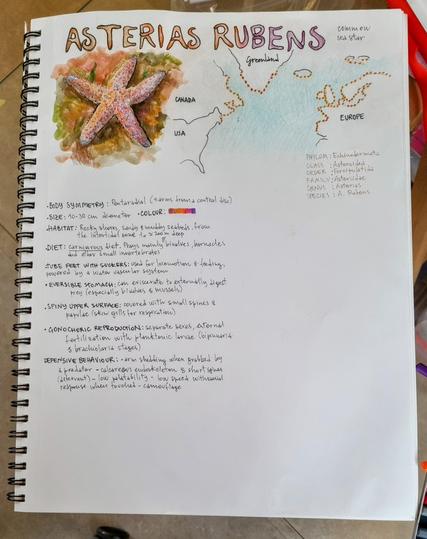 ASTERIAS RUBENS
common
sea star
Greenland
CANADA
USA
EUROPE
PHYLUM: Echinodermata
CLASS: Asteroidea
ORDER: Forcipulatida
FAMILY: Asteriidae
GENUS: Asterias
SPECIES: A. Rubens
• BODY SYMMETRY: Pentaradial (5 arms from a central disc)
• SIZE: 10-30 cm diameter • COLOUR:
HABITAT: Rocky shores, sandy & muddy seabeds, from
the intertidal zone to 200m deep
• DIET: carnivorous diet. Preys mainly bivalves, barnacles
and other small invertebrates
TUBE FEET WITH SUCKERS: used for locomotion & feeding,
powered by a water vascular system
• EVERSIBLE STOMACH: can eviscerate to externally digest
prey (especially bivalves & mussels)
• SPINY UPPER SURFACE: covered with small spines &
papulae (skin gills for respiration)
• GONOCHORIC REPRODUCTION: separate sexes, external
fertilisation with planktonic larvae (bipinnaria
& brachiolaria stages)
DEFENSIVE BEHAVIOUR: - arm shedding when grabbed by
a predator - calcareous endoskeleton & short spines
(deterrent) - low palatability - low speed withdrawal
response when touched - camouflage